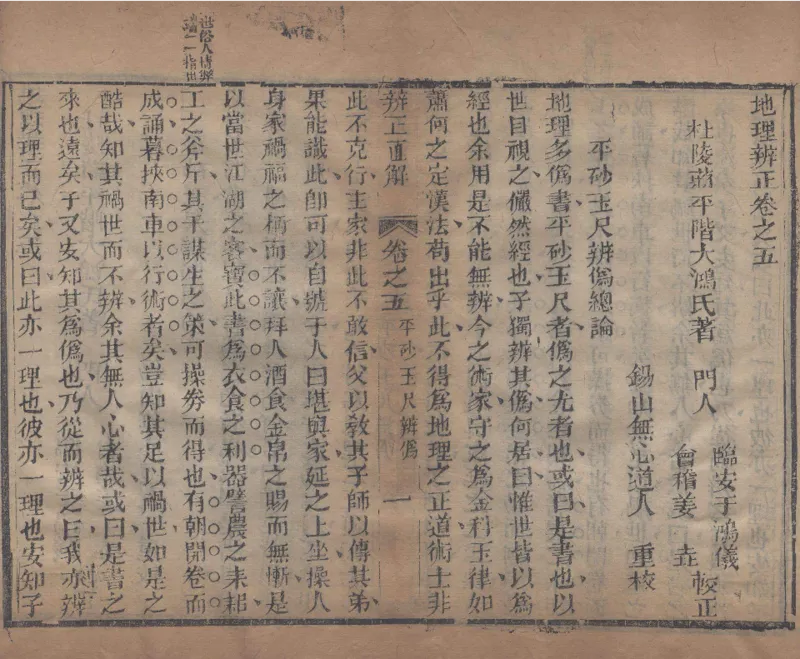 地理辨正卷之五
杜陵蔣平階大鴻氏著 門人
臨安于鴻儀
會稽姜垚
較正
錫山無心道人 重校
平砂玉尺辨僞總論
地理多僞書平砂玉尺者僞之尤者也或曰是書也以
世目視之儼然經也子獨辨其僞何居曰惟世皆以爲
經也余用是不能無辨今之術家守之爲金科玉律如
蕭何之定漢法苟出乎此不得爲地理之正道術士非
辨正直解 卷之五 平砂玉尺辨僞 一
此不克行主家非此不敢信父以敎其子師以傳其弟
果能識此卽可以自號于人曰堪輿家延之上坐操人
身家禍福之柄而不讓拜人酒食金帛之賜而無慚是
以當世江湖之客寶此書爲衣食之利器譬農之耒耜
工之斧斤其于謀生之策可操券而得也有朝開卷而
成誦暮挾南車以行術者矣豈知其足以禍世如是之
酷哉知其禍世而不辨余其無人心者哉或曰是書之
來也遠矣子又安知其爲僞也乃從而辨之曰我亦辨
之以理而已矣或曰此亦一理也彼亦一理也安知子
世俗人情
一一指